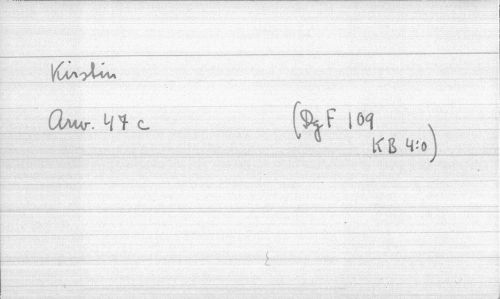 Kirstin
Arw. 47 c
(DgF 109
KB 4:o)